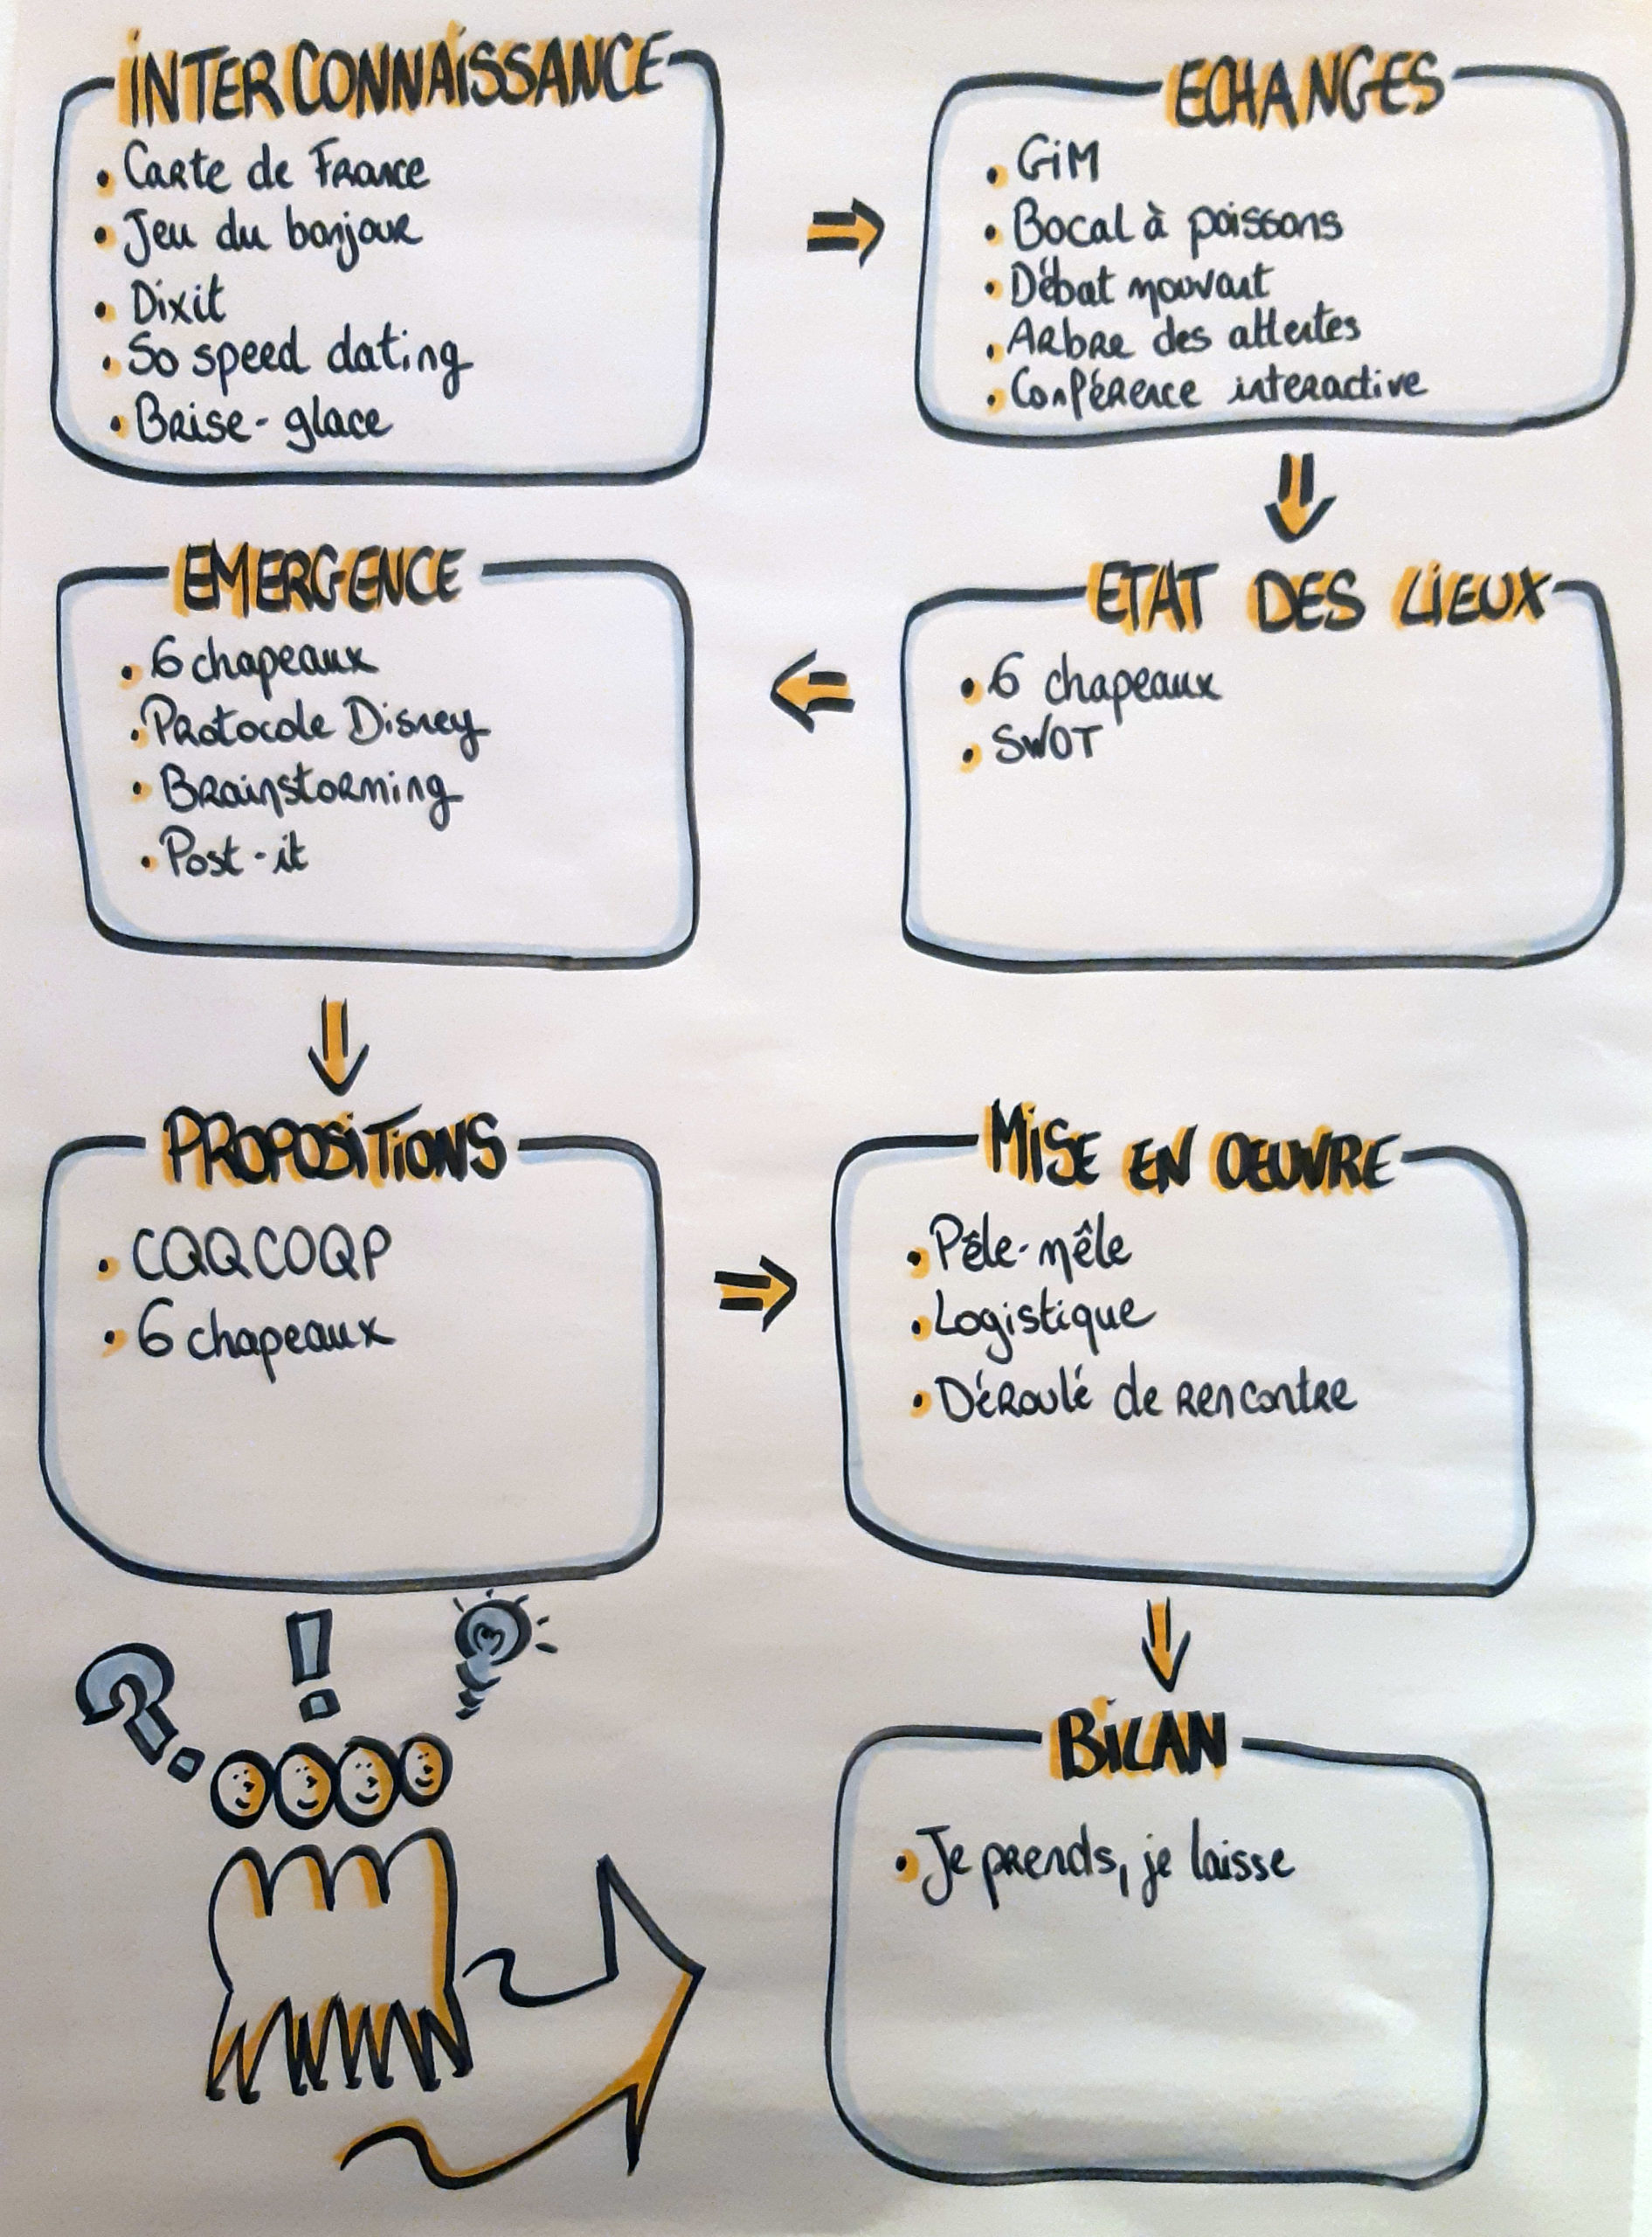 INTERCONNAISSANCE
• Carte de France
• Jeu du bonjour
• Dixit
• So speed dating
• Brise-glace
ECHANGES
• GiM
• Bocal à poissons
• Débat mouvant
• Arbre des attentes
• Conférence interactive
ETAT DES LIEUX
• 6 chapeaux
• SWOT
EMERGENCE
• 6 chapeaux
• Protocole Disney
• Brainstorming
• Post-it
PROPOSITIONS
• CQQCOQP
• 6 chapeaux
MISE EN OEUVRE
• Pêle-mêle
• Logistique
• Déroulé de rencontre
BILAN
• Je prends, je laisse
? !